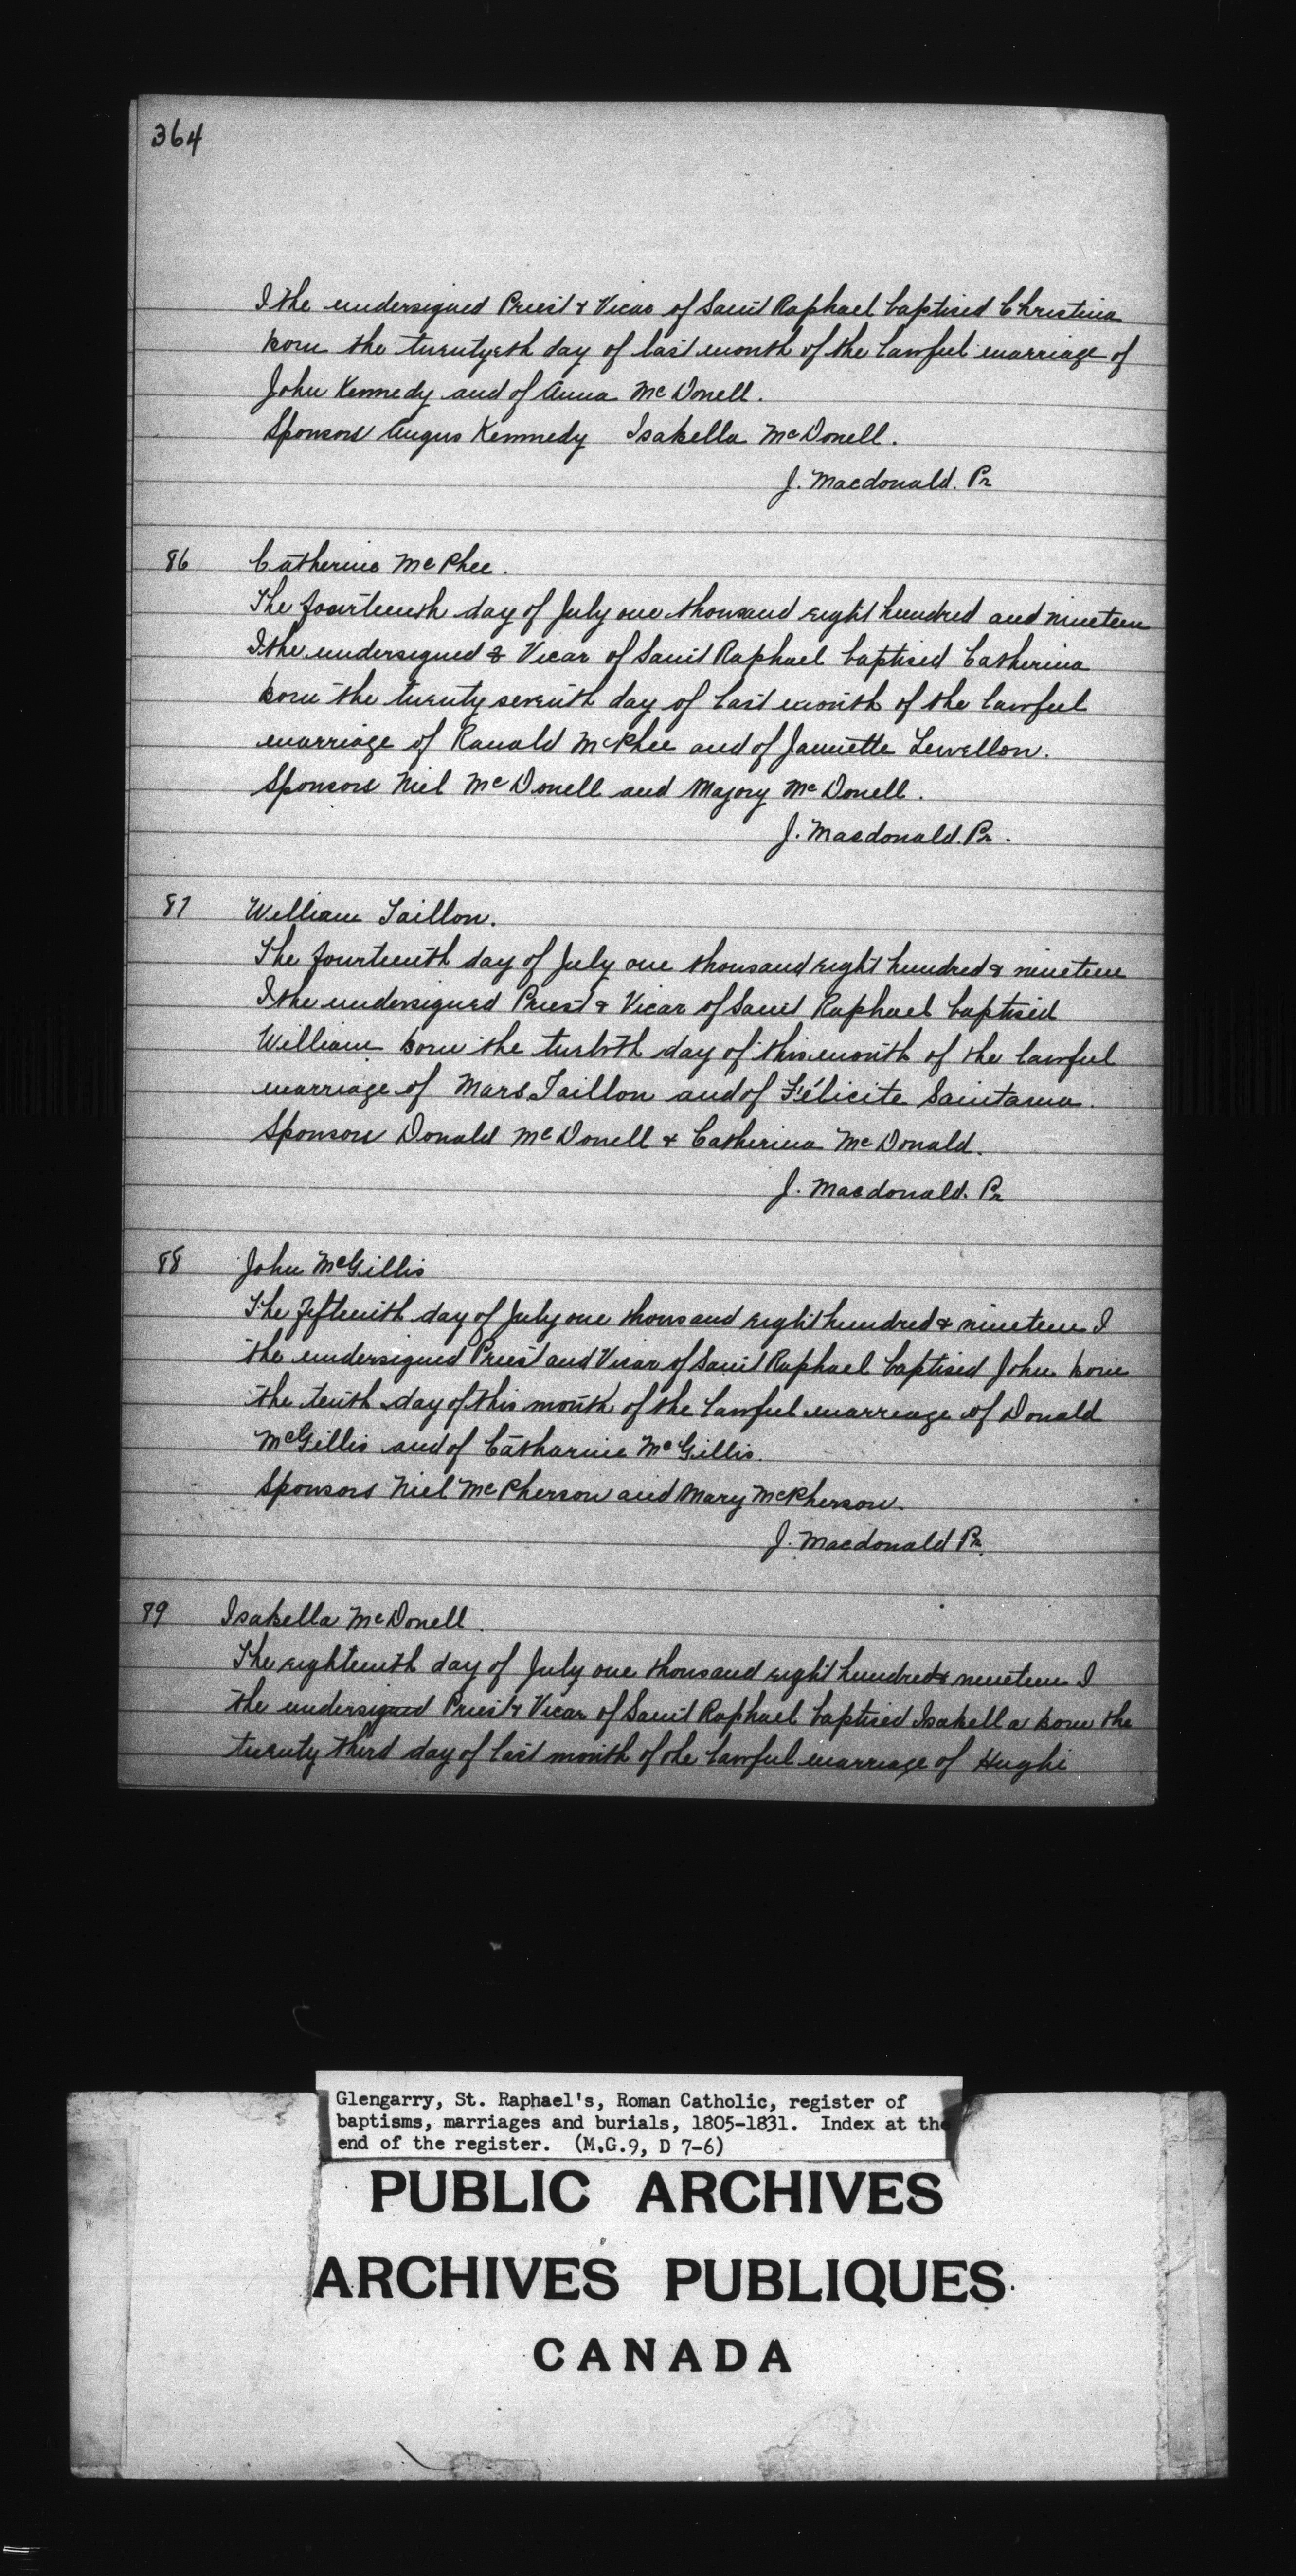 364
I the undersigned Priest & Vicar of Saint Raphael baptised Christina
born the twentyeth day of last month of the lawful marriage of
John Kennedy and of Anna McDonell.
Sponsors Angus Kennedy Isabella McDonell.
J. Macdonald. Pr
86 Catherine McPhee.
The fourteenth day of July one thousand eight hundred and nineteen
I the undersigned & Vicar of Saint Raphael baptised Catherina
born the twenty seventh day of last month of the lawful
marriage of Ranald McPhee and of Jannette Lewellon.
Sponsors Niel McDonell and Majory McDonell.
J. Macdonald. Pr.
87 William Taillon.
The fourteenth day of July one thousand eight hundred & nineteen
I the undersigned Priest & Vicar of Saint Raphael baptised
William born the twelvth day of this month of the lawful
marriage of Mars Taillon and of Félicite Saintama.
Sponsors Donald McDonell & Catherina McDonald.
J. Macdonald. Pr
88 John McGillis
The fifteenth day of July one thousand eight hundred & nineteen I
the undersigned Priest and Vicar of Saint Raphael baptised John born
the tenth day of this month of the lawful marriage of Donald
McGillis and of Catharine McGillis.
Sponsors Niel McPherson and Mary McPherson.
J. Macdonald Pr.
89 Isabella McDonell.
The eighteenth day of July one thousand eight hundred & nineteen I
the undersigned Priest & Vicar of Saint Raphael baptised Isabella born the
twenty third day of last month of the lawful marriage of Hughi
Glengarry, St. Raphael's, Roman Catholic, register of
baptisms, marriages and burials, 1805-1831. Index at the
end of the register. (M.G.9, D 7-6)
PUBLIC ARCHIVES
ARCHIVES PUBLIQUES
CANADA